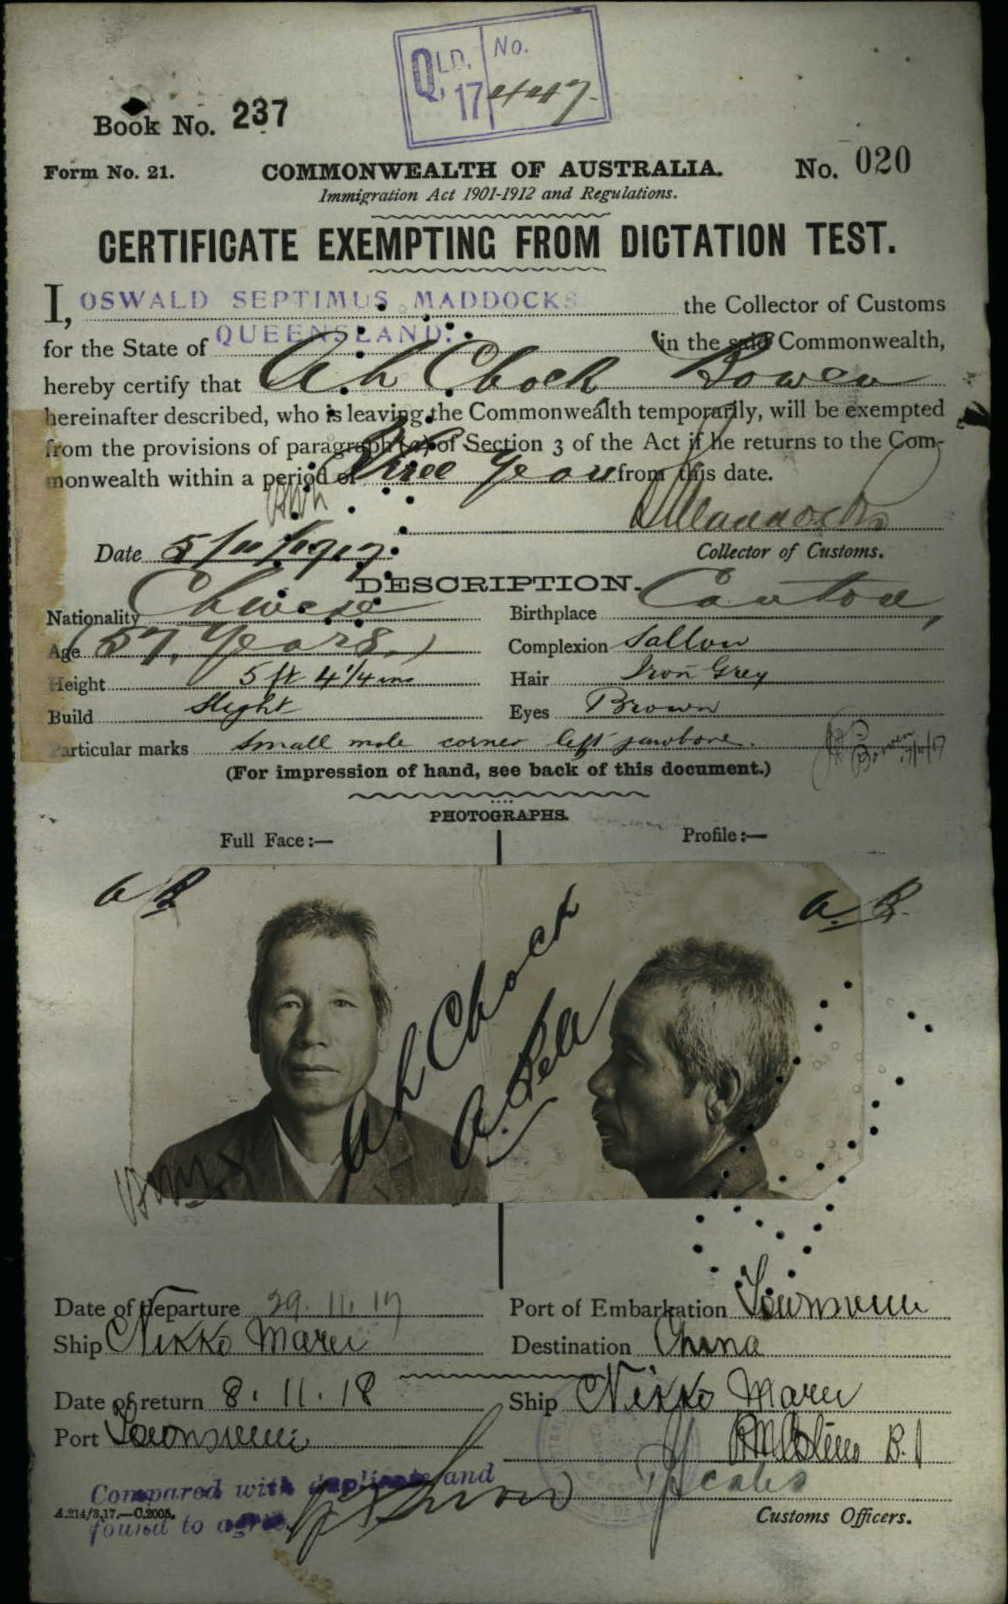 QLD. No.
17 447.
Book No. 237
Form No. 21. COMMONWEALTH OF AUSTRALIA. No. 020
Immigration Act 1901-1912 and Regulations.
CERTIFICATE EXEMPTING FROM DICTATION TEST.
I, OSWALD SEPTIMUS MADDOCKS the Collector of Customs
for the State of QUEENSLAND. in the said Commonwealth,
hereby certify that Ah Chock Bowen
hereinafter described, who is leaving the Commonwealth temporarily, will be exempted
from the provisions of paragraph (a) of Section 3 of the Act if he returns to the Com-
monwealth within a period of Three Years from this date.
Date 5/11/1917. Collector of Customs.
DESCRIPTION.
Nationality Chinese Birthplace Canton
Age (57. Years.) Complexion Sallow
Height 5 ft 4 1/4 ins Hair Iron Grey
Build Slight Eyes Brown
Particular marks Small mole corner left jawbone.
(For impression of hand, see back of this document.)
PHOTOGRAPHS.
Full Face:— Profile:—
Ah Chock
Date of departure 29.11.17 Port of Embarkation Townsville
Ship Nikko Maru Destination China
Date of return 8.11.18 Ship Nikko Maru
Port Townsville
Compared with duplicate and
found to agree
A.214/3.17.—C.2005. Customs Officers.